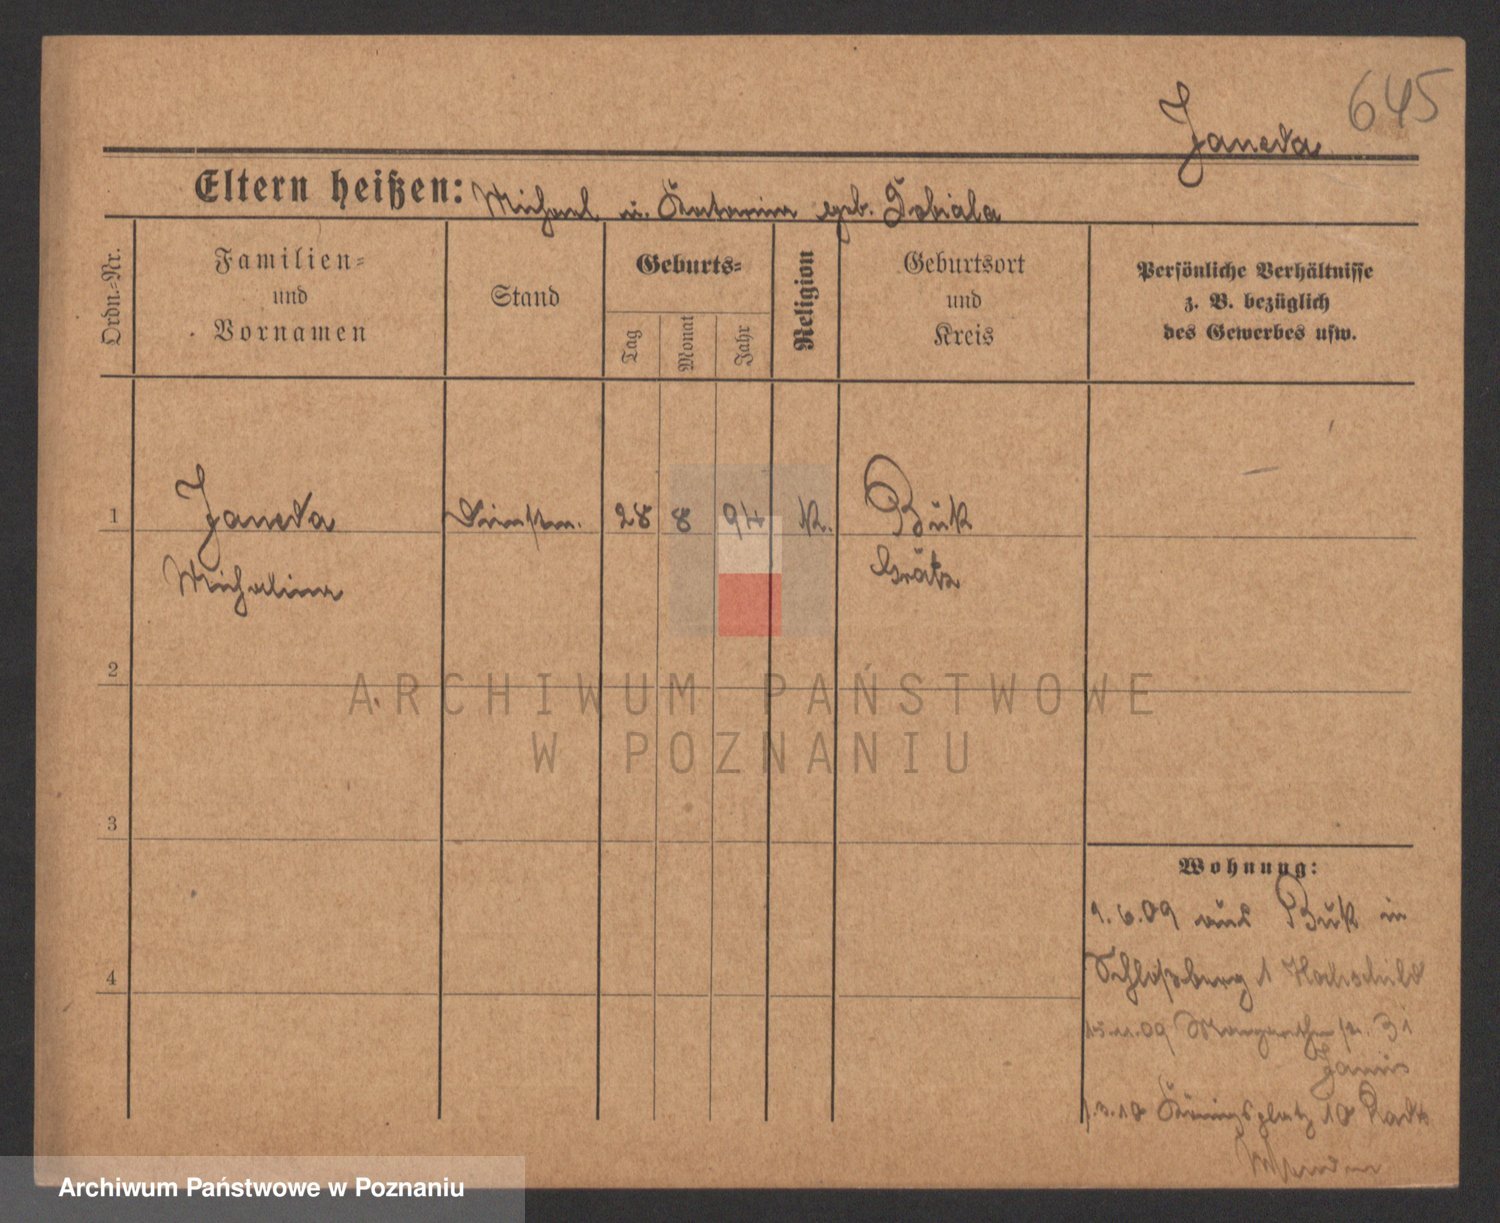 645
Janeva
Eltern heißen: Michael u. Katarina geb. Dobiala
Ordn.-Nr.
Familien-
und
Vornamen
Stand
Geburts-
Tag
Monat
Jahr
Religion
Geburtsort
und
Kreis
Persönliche Verhältnisse
z. B. bezüglich
des Gewerbes usw.
1
Janeva
Michalina
28
8
94
K.
Buk
Grätz
2
3
4
Wohnung:
1.6.09 aus Buk in
Schloßberg 1
15.11.09 Margarethenstr. 31
1.3.10 Königsplatz 10
ARCHIWUM PAŃSTWOWE
W POZNANIU
Archiwum Państwowe w Poznaniu